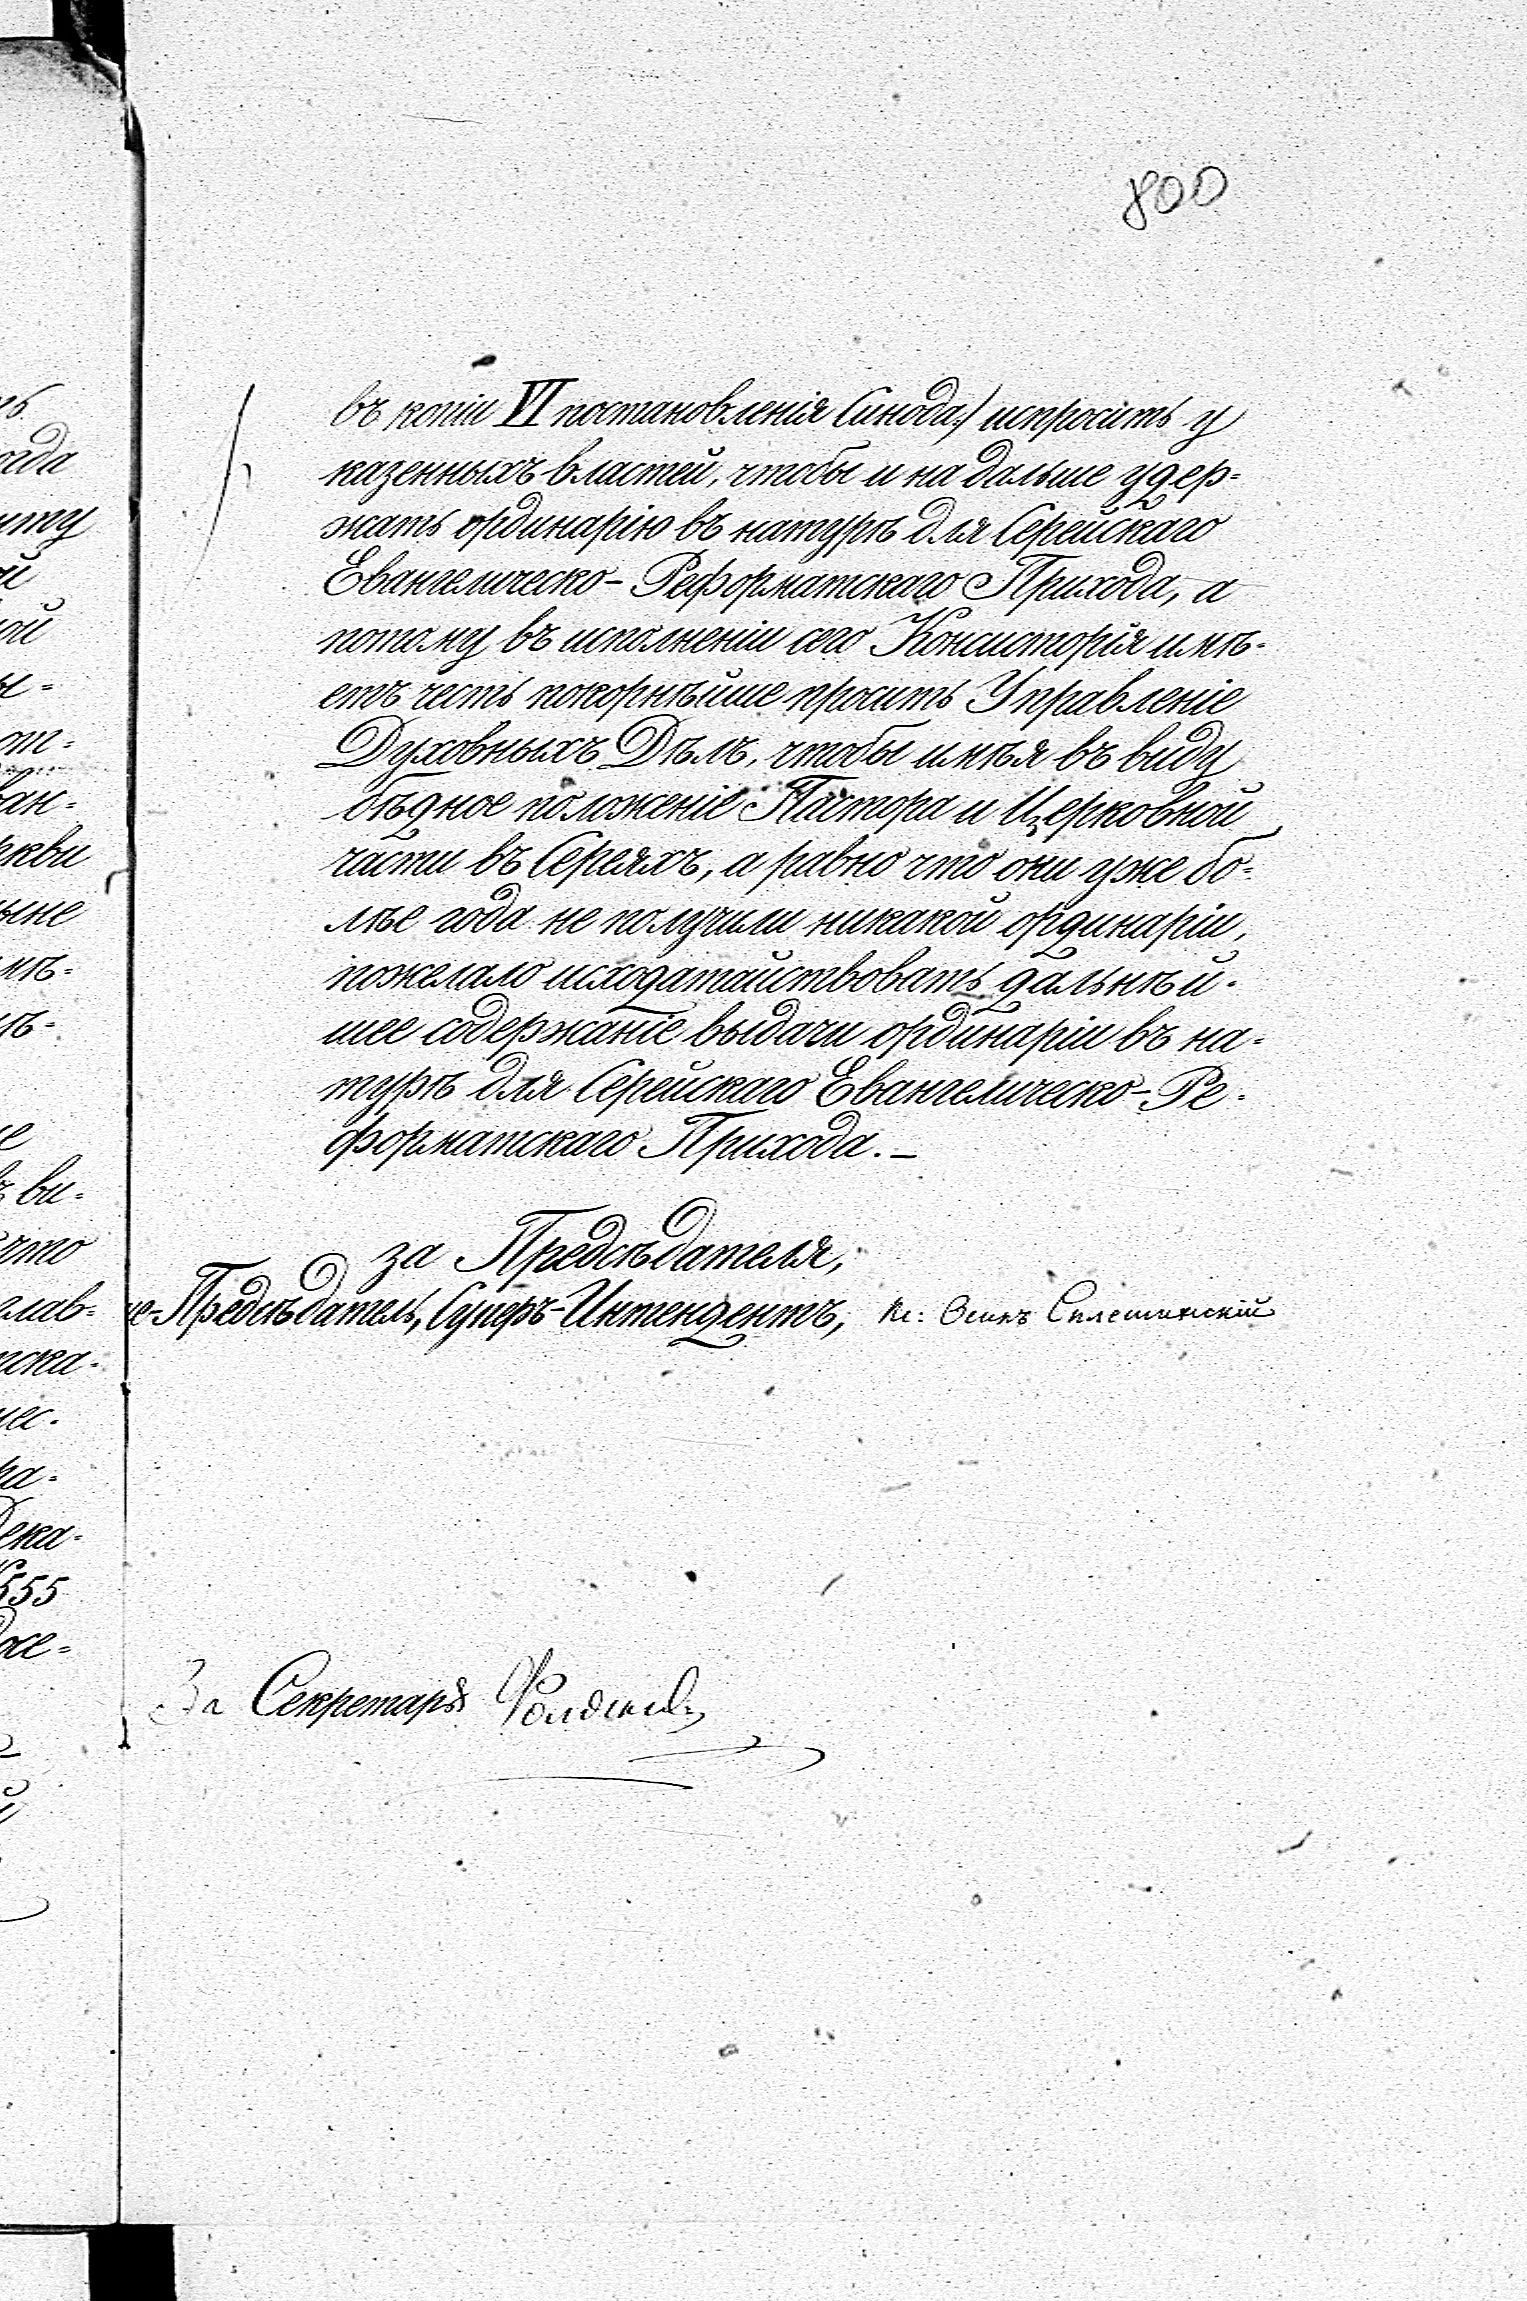 800
въ копіи VI постановленія Синода) испросить у
казенныхъ властей, чтобы и на дальше удер=
жать ординарію въ натурѣ для Серейскаго
Евангелическо-Реформатскаго Прихода, а
потому въ исполненіи сего Консисторія имѣ=
етъ честь покорнѣйше просить Управленіе
Духовныхъ Дѣлъ, чтобы имѣя въ виду
бѣдное положеніе Пастора и Церковной
части въ Сереяхъ, а равно что они уже бо=
лѣе года не получили никакой ординаріи,
пожелало исходатайствовать дальнѣй=
шее содержаніе выдачи ординаріи въ на=
турѣ для Серейскаго Евангелическо-Ре=
форматскаго Прихода._
за Предсѣдателя,
це-Предсѣдатель, Суперъ-Интендентъ,
За Секретаря